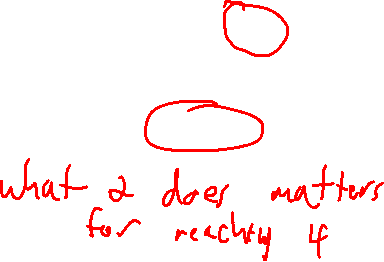 what 2 does matters
for reaching 4